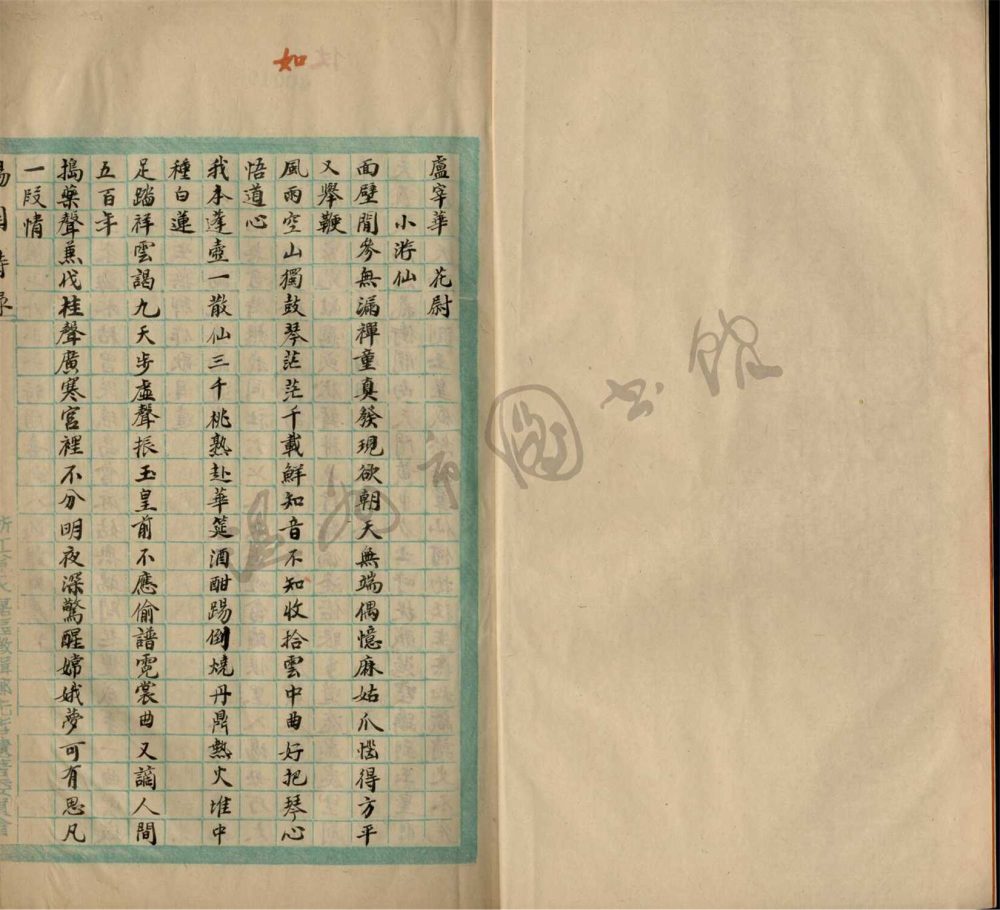 如
盧宰華 花尉
小游仙
面壁閒參無漏禪童真發現欲朝天無端偶憶麻姑爪惱得方平
又舉鞭
風雨空山獨鼓琴茫茫千載鮮知音不知收拾雲中曲好把琴心
悟道心
我本蓬壺一散仙三千桃熟赴華筵酒酣踢倒燒丹鼎熱火堆中
種白蓮
足踏祥雲謁九天步虛聲振玉皇前不應偷譜霓裳曲又謫人間
五百年
搗藥聲兼伐桂聲廣寒宮裡不分明夜深驚醒嫦娥夢可有思凡
一段情
溫州市圖書館